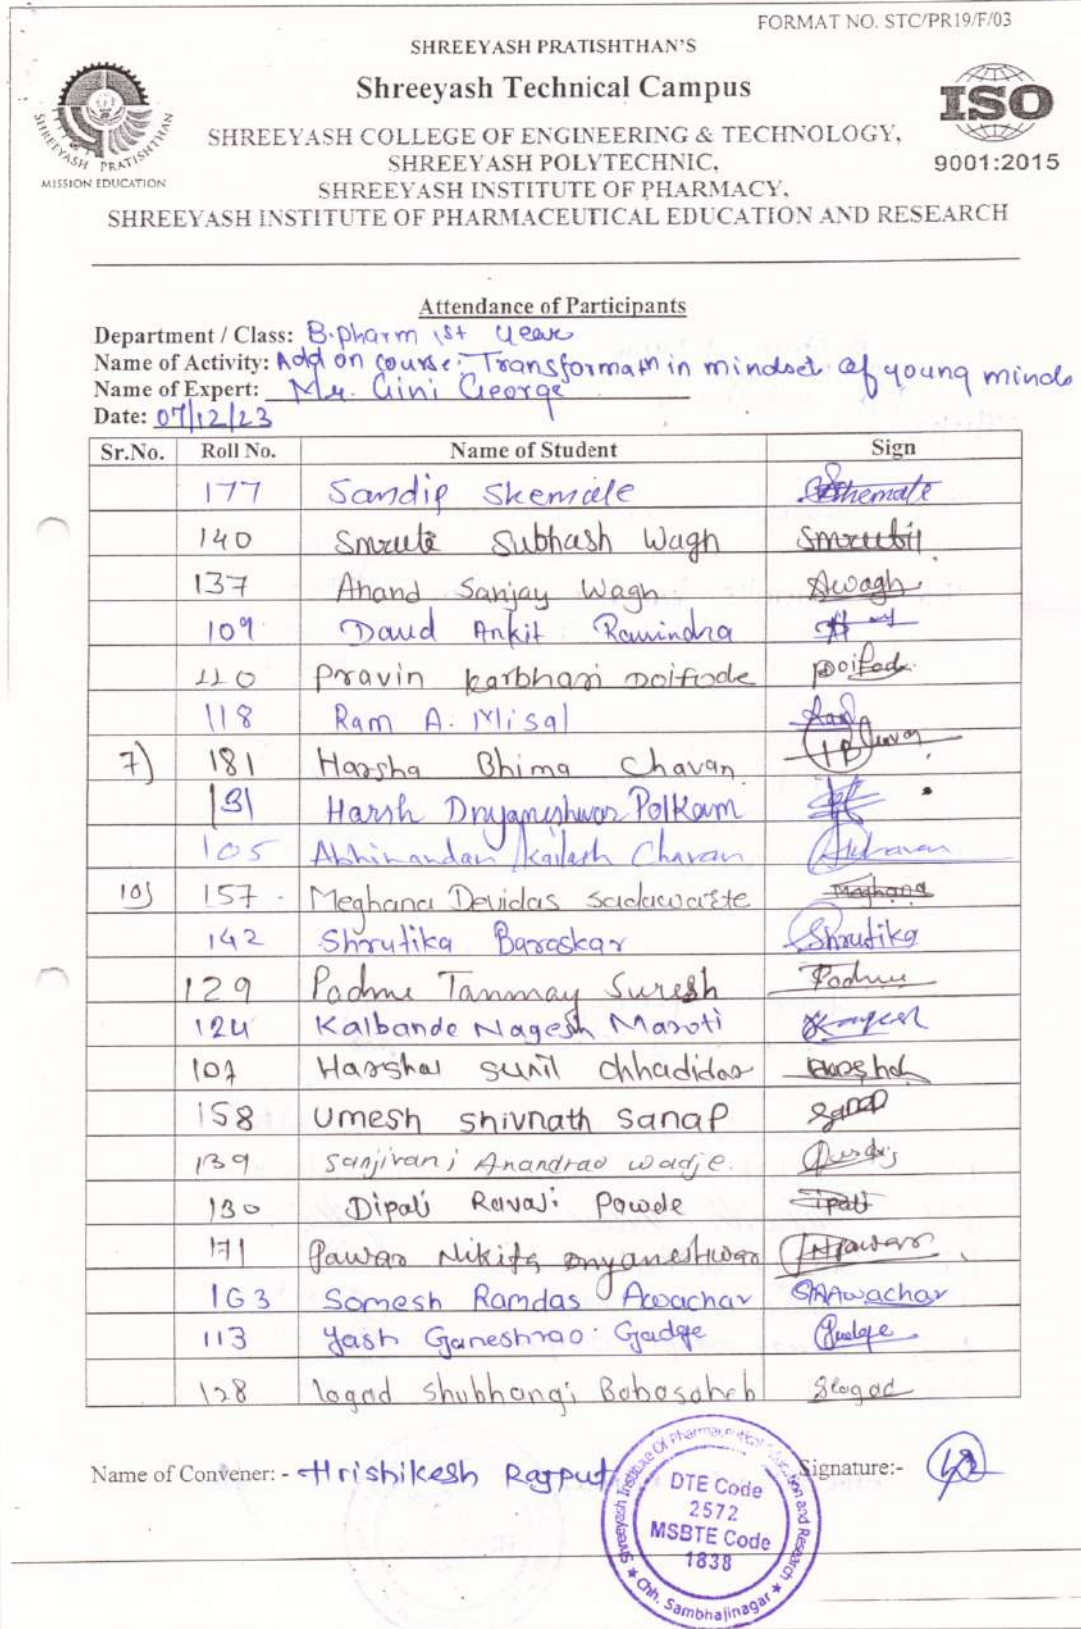 FORMAT NO. STC/PR19/F/03
SHREEYASH PRATISHTHAN'S
Shreeyash Technical Campus
SHREEYASH COLLEGE OF ENGINEERING & TECHNOLOGY,
SHREEYASH POLYTECHNIC,
SHREEYASH INSTITUTE OF PHARMACY,
SHREEYASH INSTITUTE OF PHARMACEUTICAL EDUCATION AND RESEARCH
SHREEYASH PRATISHTHAN
MISSION EDUCATION
ISO
9001:2015
Attendance of Participants
Department / Class: B.pharm 1st year
Name of Activity: Add on course: Transformatn in mindset of young minds
Name of Expert: Mr. Gini George
Date: 07/12/23
Sr.No. Roll No. Name of Student Sign
177 Sandip Shemate Shemate
140 Smruti Subhash Wagh Smruti
137 Anand Sanjay Wagh Awagh
109 Daud Ankit Ravindra
110 Pravin karbhari Doifode Doifode
118 Ram A. Misal Ram
7) 181 Harsha Bhima Chavan
131 Harsh Dnyaneshwar Polkam
105 Abhinandan Kailash Chavan AChavan
10) 157 Meghana Devidas sadawarte Meghana
142 Shrutika Baraskar Shrutika
129 Padme Tanmay Suresh Padme
124 Kalbande Nagesh Maroti
107 Harshal sunil chhadidar Harshal
158 Umesh shivnath Sanap Sanap
139 Sanjivani Anandrao wadje.
130 Dipali Ravaji Pawde Dipali
171 Pawar Nikita Dnyaneshwar NPawar
163 Somesh Ramdas Awachar SRAwachar
113 Yash Ganeshrao Gadge Gadge
128 lagad shubhangi Babasaheb Slagad
Name of Convener: - Hrishikesh Rajput Signature:-
Shreeyash Institute Of Pharmaceutical Education and Research
DTE Code
2572
MSBTE Code
1838
★ Chh. Sambhajinagar ★